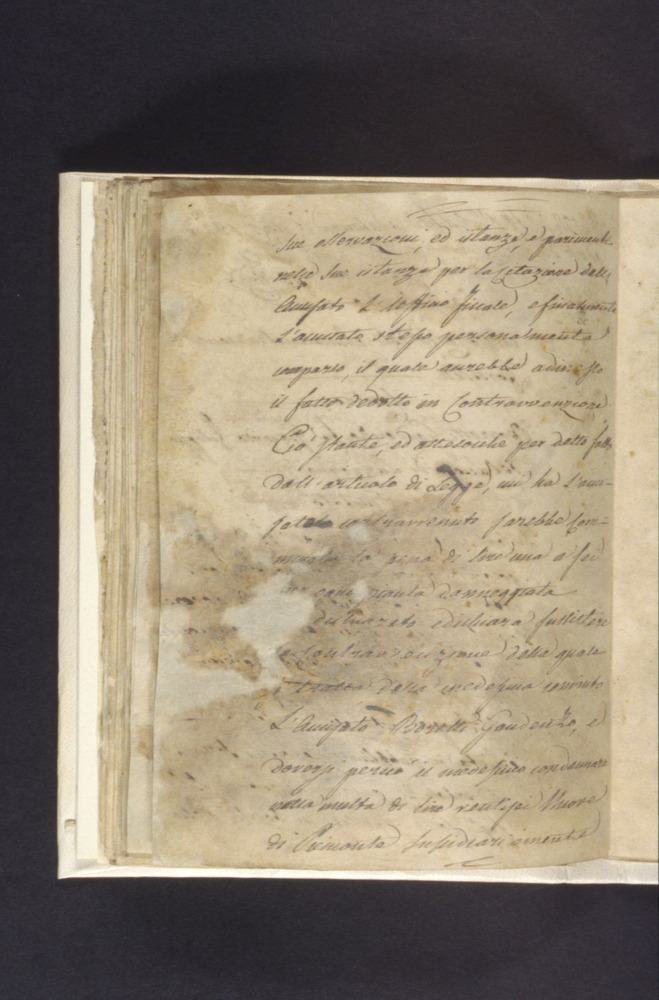 sue osservazioni, ed istanze, e parimenti
nelle sue istanze per la citazione dell'
accusato l'Avv.o fiscale, e finalmente
l'accusato stesso personalmente
comparso, il quale avrebbe ad
il fatto dedotto in Contravvenzione
Ciò stante, ed attesoché per detto fatto
dall'articolo di Legge, cui ha l'accu-
sato contravvenuto sarebbe com-
minata la pena di lire una a sei
per cani pianta danneggiata
dichiarato e dichiara sussistere
la contravvenzione della quale
si tratta della medesima convinto
L'Accusato Gaudenzo, e
doversi perciò il medesimo condannare
nella multa di lire ventisei Nuove
di Piemonte sussidiariamente